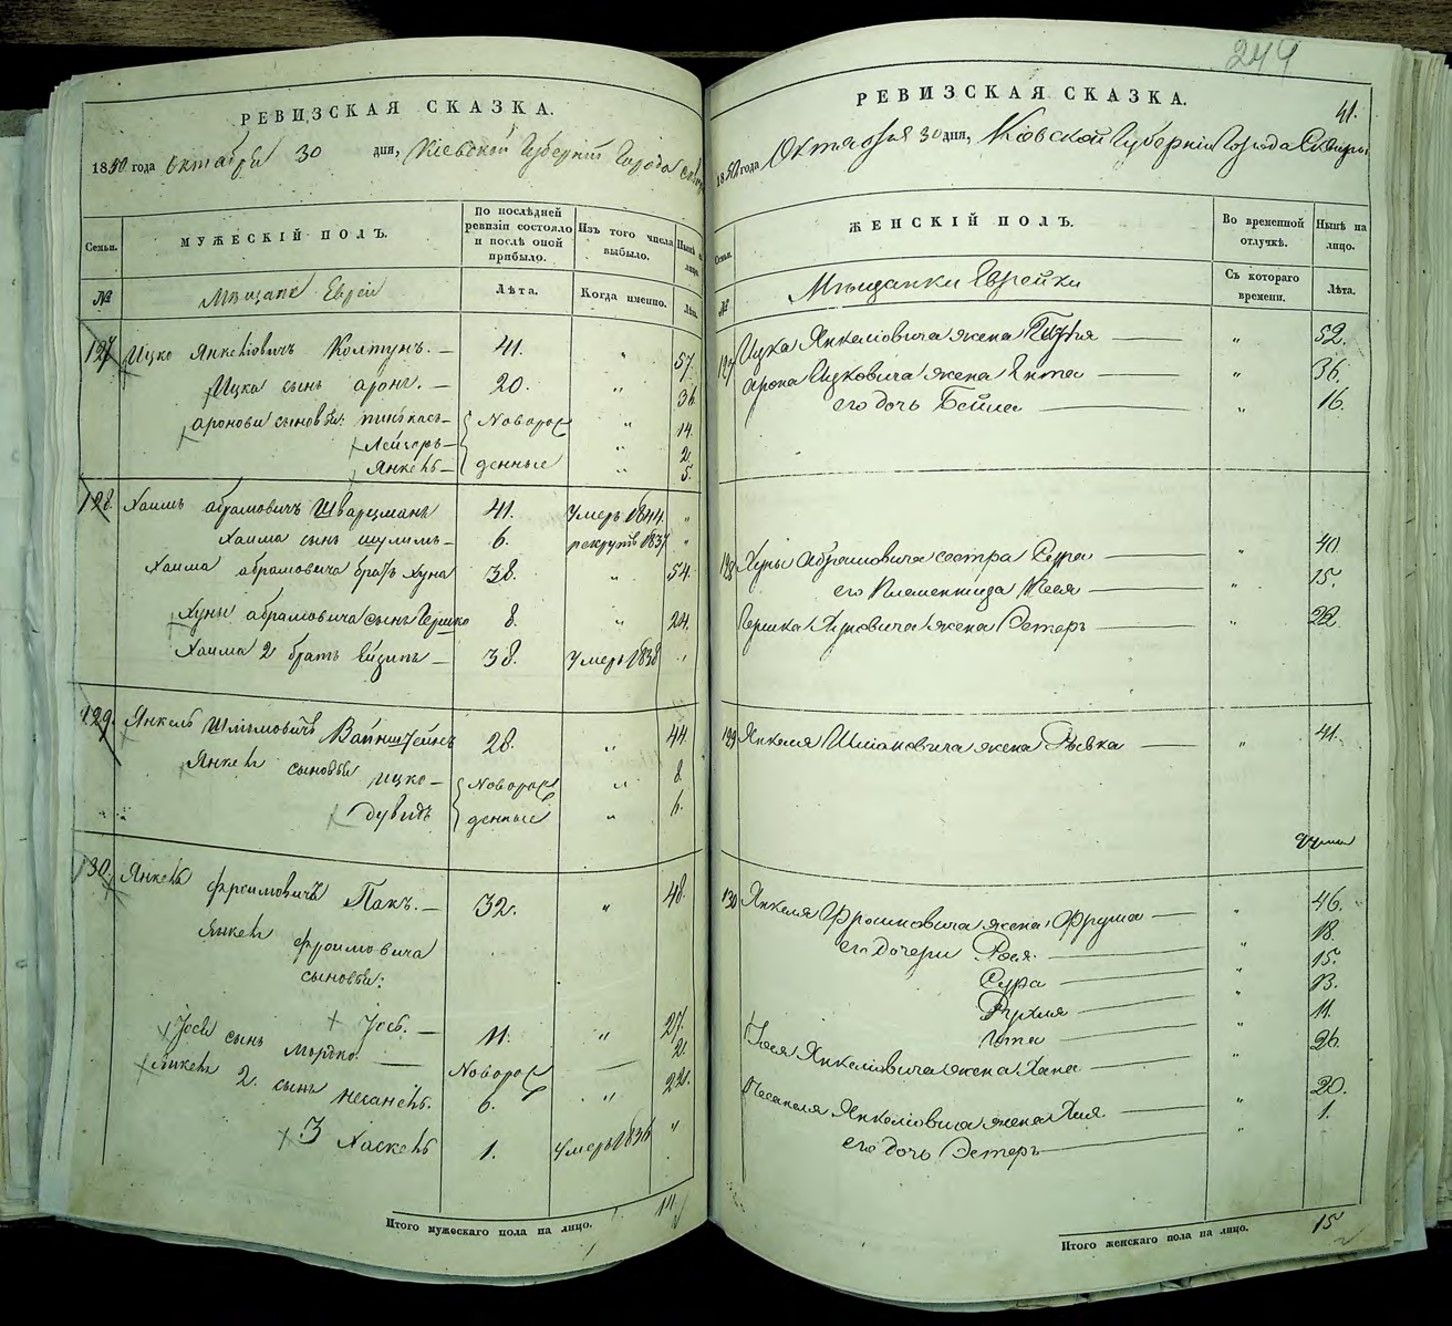 РЕВИЗСКАЯ СКАЗКА.
1850 года Октября 30 дня, Кіевской Губерніи Города
Семьи.
МУЖЕСКІЙ ПОЛЪ.
По послѣдней ревизіи состояло и послѣ оной прибыло.
Изъ того числа выбыло.
Нынѣ
№
Мѣщане Евреи
Лѣта.
Когда именно.
Лѣта.
127 Ицко Янкеліовичъ Колтунъ. — 41. „ 57.
Ицка сынъ аронъ. — 20. „ 36
ароновы сыновья: пинькасъ — Новорож „ 14.
Лейзоръ — „ 2
Янкель — денные „ 5.
128. Хаимъ абрамовичъ Шварцманъ 41. Умеръ 1844 „
Хаима сынъ шулимъ — 6. рекрутъ 1837 „
Хаима абрамовича братъ Хуна 38. „ 54.
Хуны абрамовича сынъ Гершко 8. „ 24.
Хаима 2 братъ Ейзипъ — 38. Умеръ 1838 „
129. Янкель Шліомовичъ Вайнштейнъ 28. „ 44.
Янкеля сыновья ицко — Новорож „ 8.
дувидъ денные „
130. Янкель фроимовичъ Пакъ. — 32. „ 48.
Янкеля фроимовича
сыновья:
Іосъ. — 11. „ 27.
Іося сынъ мордко. — Новорож — 2.
Янкеля 2. сынъ Несанель. 6. „ 22.
3 Хаскель 1. Умеръ 1836 „
Итого мужескаго пола на лицо.
244
41.
РЕВИЗСКАЯ СКАЗКА.
1850 года Октября 30 дня, Кіевской Губерніи Города Сквиры
Семьи.
ЖЕНСКІЙ ПОЛЪ.
Во временной отлучкѣ.
Нынѣ на лицо.
№
Мѣщанки Еврейки
Съ котораго времени.
Лѣта.
127 Ицка Янкеліовича жена — „ 52.
Арона Ицковича жена Ента — „ 36.
его дочь Бейла — „ 16.
128 Хуны Абрамовича сестра Сура — „ 40.
его Племенница Кеся — „ 15.
Гершка Хуновича жена Эстеръ — „ 22.
129 Янкеля Шліомовича жена Ривка — „ 41.
130 Янкеля Фроимовича жена Фрума — „ 46.
его дочери Рося — „ 18.
Сура — „ 15.
Рухля — „ 13.
Гитта — „ 11.
Іося Янкеліовича жена Хана — „ 26.
Несанеля Янкеліовича жена Хая — „ 20.
его дочь Эстеръ — „ 1.
Итого женскаго пола на лицо. 15